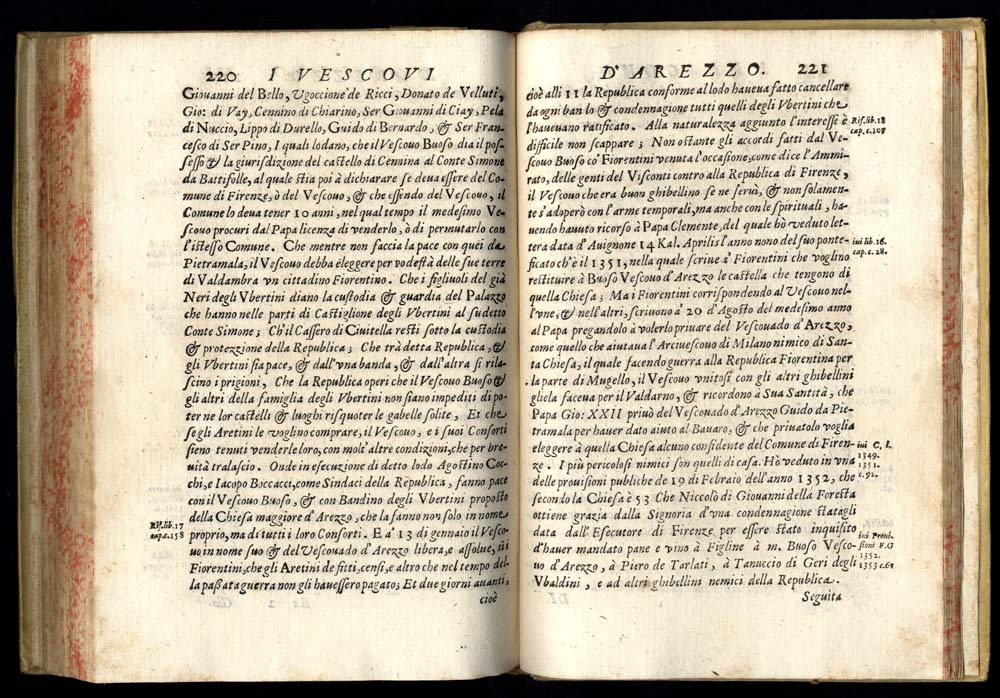 220 I VESCOVI
Giovanni del Bello, Ugoccione de Ricci, Donato de Velluti,
Gio: di Vay, Cennino di Chiarino, Ser Giouanni di Ciay, Pela
di Nuccio, Lippo di Durello, Guido di Bernardo, & Ser Fran-
cesco di Ser Pino, I quali lodano, che il Vescouo Buoso dia il pos-
sesso & la giurisdizione del castello di Cennina al Conte Simone
da Battifolle, al quale stia poi à dichiarare se deua essere del Co-
mune di Firenze, ò del Vescouo, & che essendo del Vescouo, il
Comune lo deua tener 10 anni, nel qual tempo il medesimo Ve-
scouo procuri dal Papa licenza di venderlo, ò di permutarlo con
l'istesso Comune. Che mentre non faccia la pace con quei da
Pietramala, il Vescouo debba eleggere per podestà delle sue terre
di Valdambra vn cittadino Fiorentino. Che i figliuoli del già
Neri degli Vbertini diano la custodia & guardia del Palazzo
che hanno nelle parti di Castiglione degli Vbertini al sudetto
Conte Simone; Ch'il Cassero di Ciuitella resti sotto la custodia
& protezzione della Republica; Che trà detta Republica, &
gli Vbertini sia pace, & dall'vna banda, & dall'altra si rila-
scino i prigioni, Che la Republica operi che il Vescouo Buoso &
gli altri della famiglia degli Vbertini non siano impediti di po-
ter ne lor castelli & luoghi risquoter le gabelle solite, Et che
se gli Aretini le voglino comprare, il Vescouo, e i suoi Consorti
sieno tenuti venderle loro, con molt'altre condizioni, che per bre-
uità tralascio. Onde in esecuzione di detto lodo Agostino Coc-
chi, e Iacopo Boccacci, come Sindaci della Republica, fanno pace
con il Vescouo Buoso, & con Bandino degli Vbertini proposto
della Chiesa maggiore d'Arezzo, che la fanno non solo in nome
Rif. lib. 17
cap. c. 158
proprio, ma di tutti i loro Consorti. E à 13 di gennaio il Vesco-
uo in nome suo & del Vescouado d'Arezzo libera, e assolue,
Fiorentini, che gli Aretini de fitti, censi, e altro che nel tempo del-
la passata guerra non gli hauessero pagato; Et due giorni auanti,
cioè
D'AREZZO. 221
cioè alli 11 la Republica conforme al lodo haueua fatto cancellare
da ogni bando & condennagione tutti quelli degli Vbertini che
l'haueuano ratificato. Alla naturalezza aggiunto l'interesse è
Rif. lib. 18
cap. c. 107
difficile non scappare; Non ostante gli accordi fatti dal Ve-
scouo Buoso co' Fiorentini venuta l'occasione, come dice l'Ammi-
rato, delle genti del Visconti contro alla Republica di Firenze,
il Vescouo che era buon ghibellino se ne seruì, & non solamen-
te s'adoperò con l'arme temporali, ma anche con le spirituali, ha-
uendo hauuto ricorso à Papa Clemente, del quale hò veduto let-
tera data d'Auignone 14 Kal. Aprilis l'anno nono del suo ponte-
iui lib. 16.
cap. c. 28.
ficato ch'è il 1351, nella quale scriue a' Fiorentini che voglino
restituire à Buoso Vescouo d'Arezzo le castella che tengono di
quella Chiesa; Ma i Fiorentini corrispondendo al Vescouo nel-
l'vne, & nell'altri, scriuono à 20 d'Agosto del medesimo anno
al Papa pregandolo à volerlo priuare del Vescouado d'Arezzo,
come quello che aiutaua l'Arciuescouo di Milano nimico di San-
ta Chiesa, il quale facendo guerra alla Republica Fiorentina per
la parte di Mugello, il Vescouo vnitosi con gli altri ghibellini
gliela faceua per il Valdarno, & ricordono à Sua Santità, che
Papa Gio: XXII priuò del Vescouado d'Arezzo Guido da Pie-
tramala per hauer dato aiuto al Bauaro, & che priuatolo voglia
eleggere à quella Chiesa alcuno confidente del Comune di Firen-
iui C. L.
1349.
1351.
c. 92.
ze. I più pericolosi nimici son quelli di casa. Hò veduto in vna
delle prouisioni publiche de 19 di Febraio dell'anno 1352, che
secondo la Chiesa è 53 Che Niccolò di Giouanni della Foresta
ottiene grazia dalla Signoria d'vna condennagione statagli
data dall'Esecutore di Firenze per essere stato inquisito
iui Proui-
sioni F.G
1352.
1353 c. 61
d'hauer mandato pane e vino à Figline à m. Buoso Vesco-
uo d'Arezzo, à Piero de Tarlati, à Tanuccio di Geri degli
Vbaldini, e ad altri ghibellini nemici della Republica.
Seguita